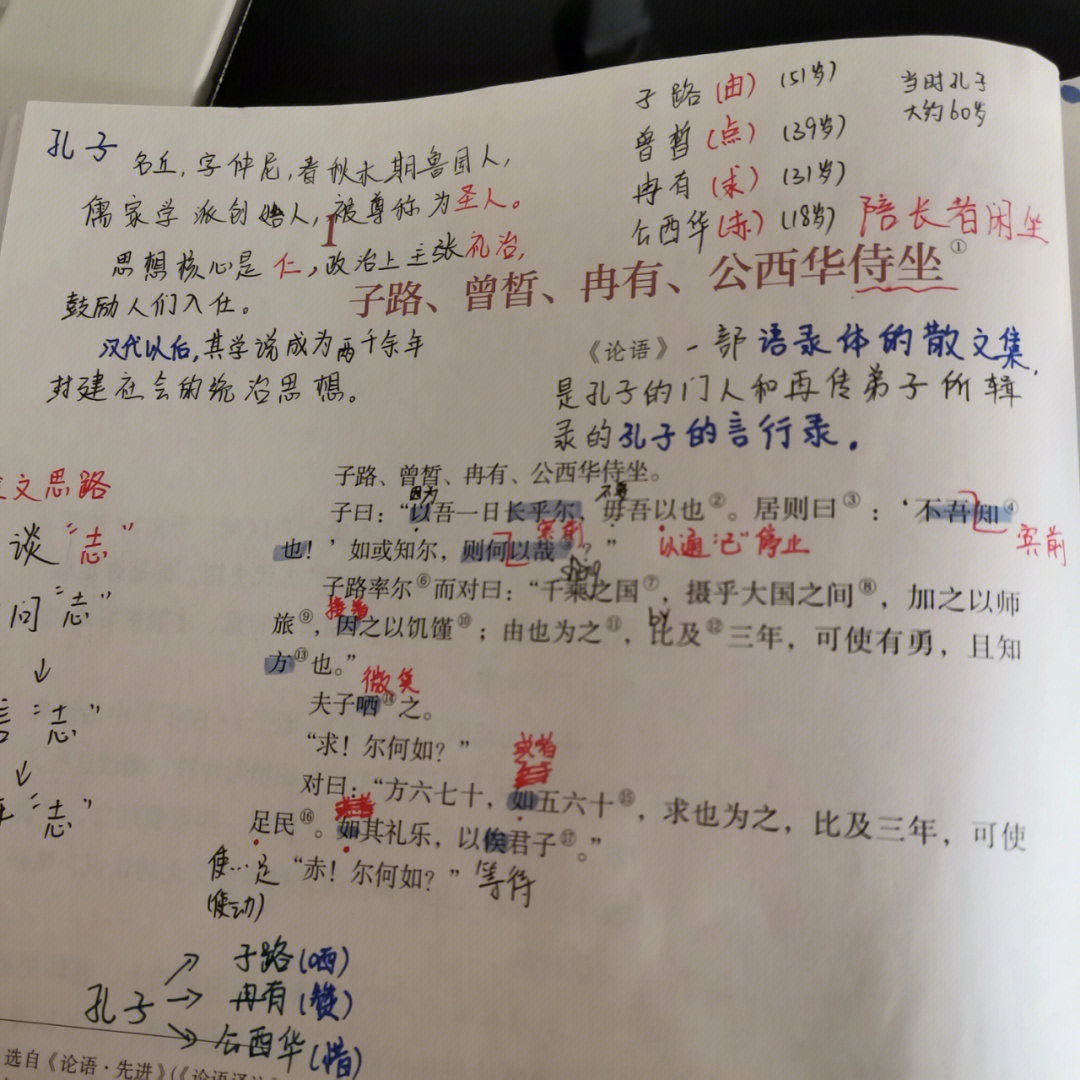 孔子
名丘，字仲尼，春秋末期鲁国人，
儒家学派创始人，被尊称为圣人。
思想核心是仁，政治上主张礼治，
鼓励人们入仕。
汉代以后，其学说成为两千余年
封建社会的统治思想。
子路(由) (51岁)
曾皙(点) (39岁)
冉有(求) (31岁)
公西华(赤) (18岁)
当时孔子
大约60岁
陪长者闲坐
1
子路、曾皙、冉有、公西华侍坐①
《论语》一部语录体的散文集，
是孔子的门人和再传弟子所辑
录的孔子的言行录。
文思路
谈“志”
问“志”
↓
言“志”
↓
“志”
子路、曾皙、冉有、公西华侍坐。
因为
子曰：“以吾一日长乎尔，毋吾以也②。居则曰③：‘不吾知④
宾前
以通“已”停止
宾前
也！’如或知尔，则何以哉⑤？”
子路率尔⑥而对曰：“千乘之国⑦，摄乎大国之间⑧，加之以师
接着
旅⑨，因之以饥馑⑩；由也为之⑪，比及⑫三年，可使有勇，且知
方⑬也。”
微笑
夫子哂⑭之。
“求！尔何如？”
或者
对曰：“方六七十，如五六十⑮，求也为之，比及三年，可使
足民⑯。如其礼乐，以俟君子⑰。”
使…足
(使动)
“赤！尔何如？”
等待
孔子
子路(哂)
冉有(赞)
公西华(惜)
选自《论语·先进》(《论语译注